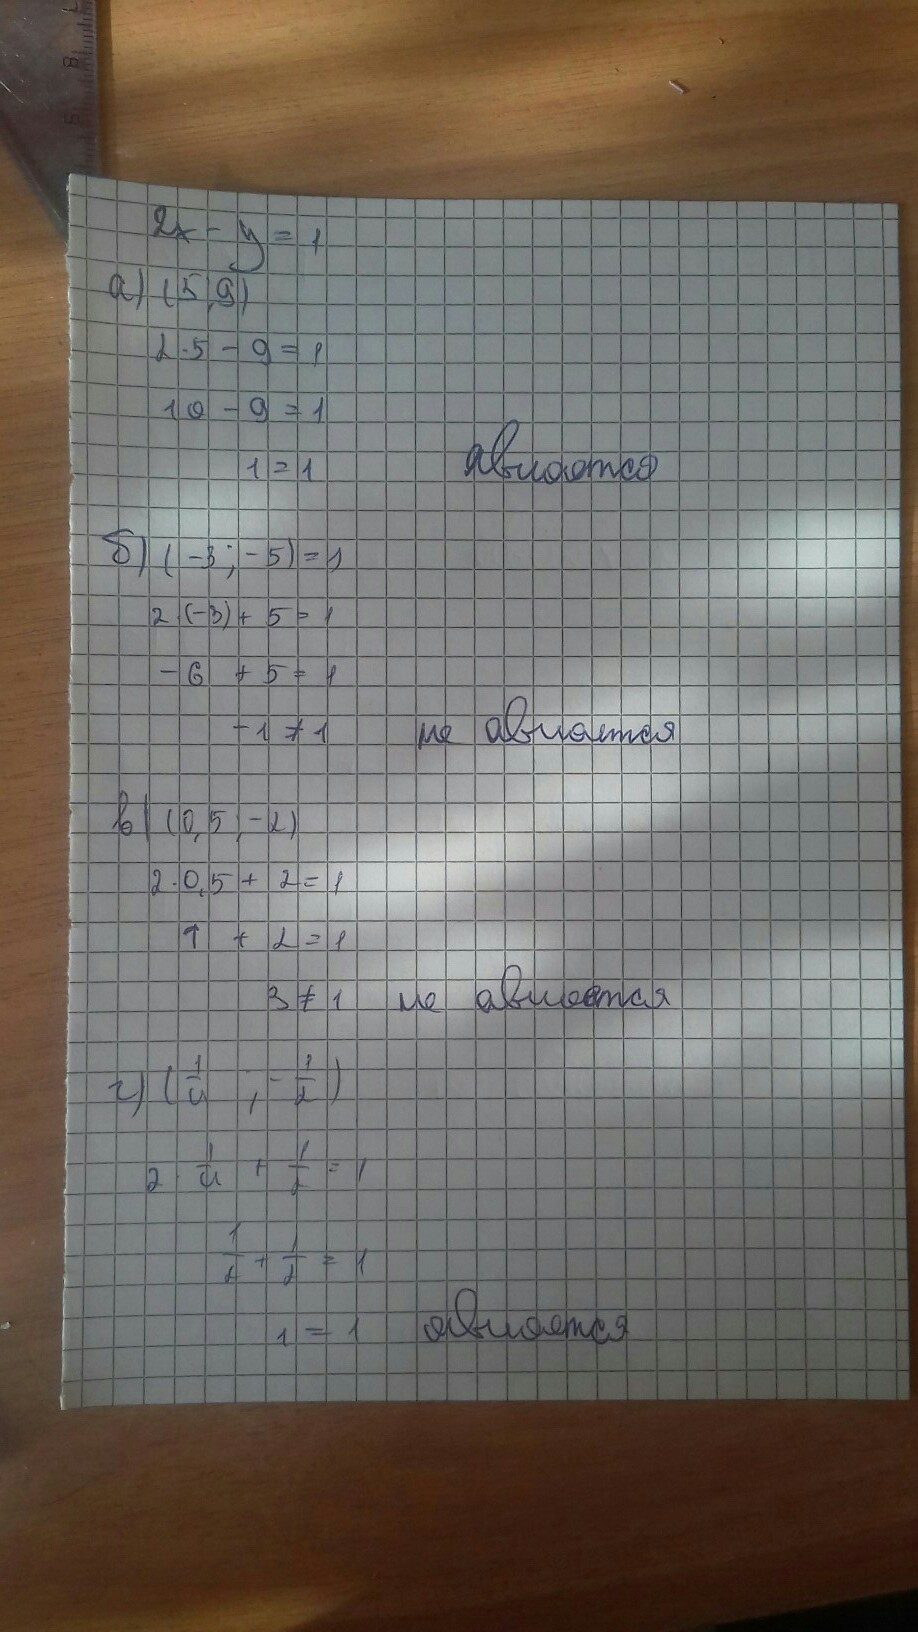 2x - y = 1
а) (5; 9)
2·5 - 9 = 1
10 - 9 = 1
1 = 1 является
б) (-3; -5) = 1
2·(-3) + 5 = 1
-6 + 5 = 1
-1 ≠ 1 не является
в) (0,5; -2)
2·0,5 + 2 = 1
1 + 2 = 1
3 ≠ 1 не является
г) (1/4 ; -1/2)
2·1/4 + 1/2 = 1
1/2 + 1/2 = 1
1 = 1 является